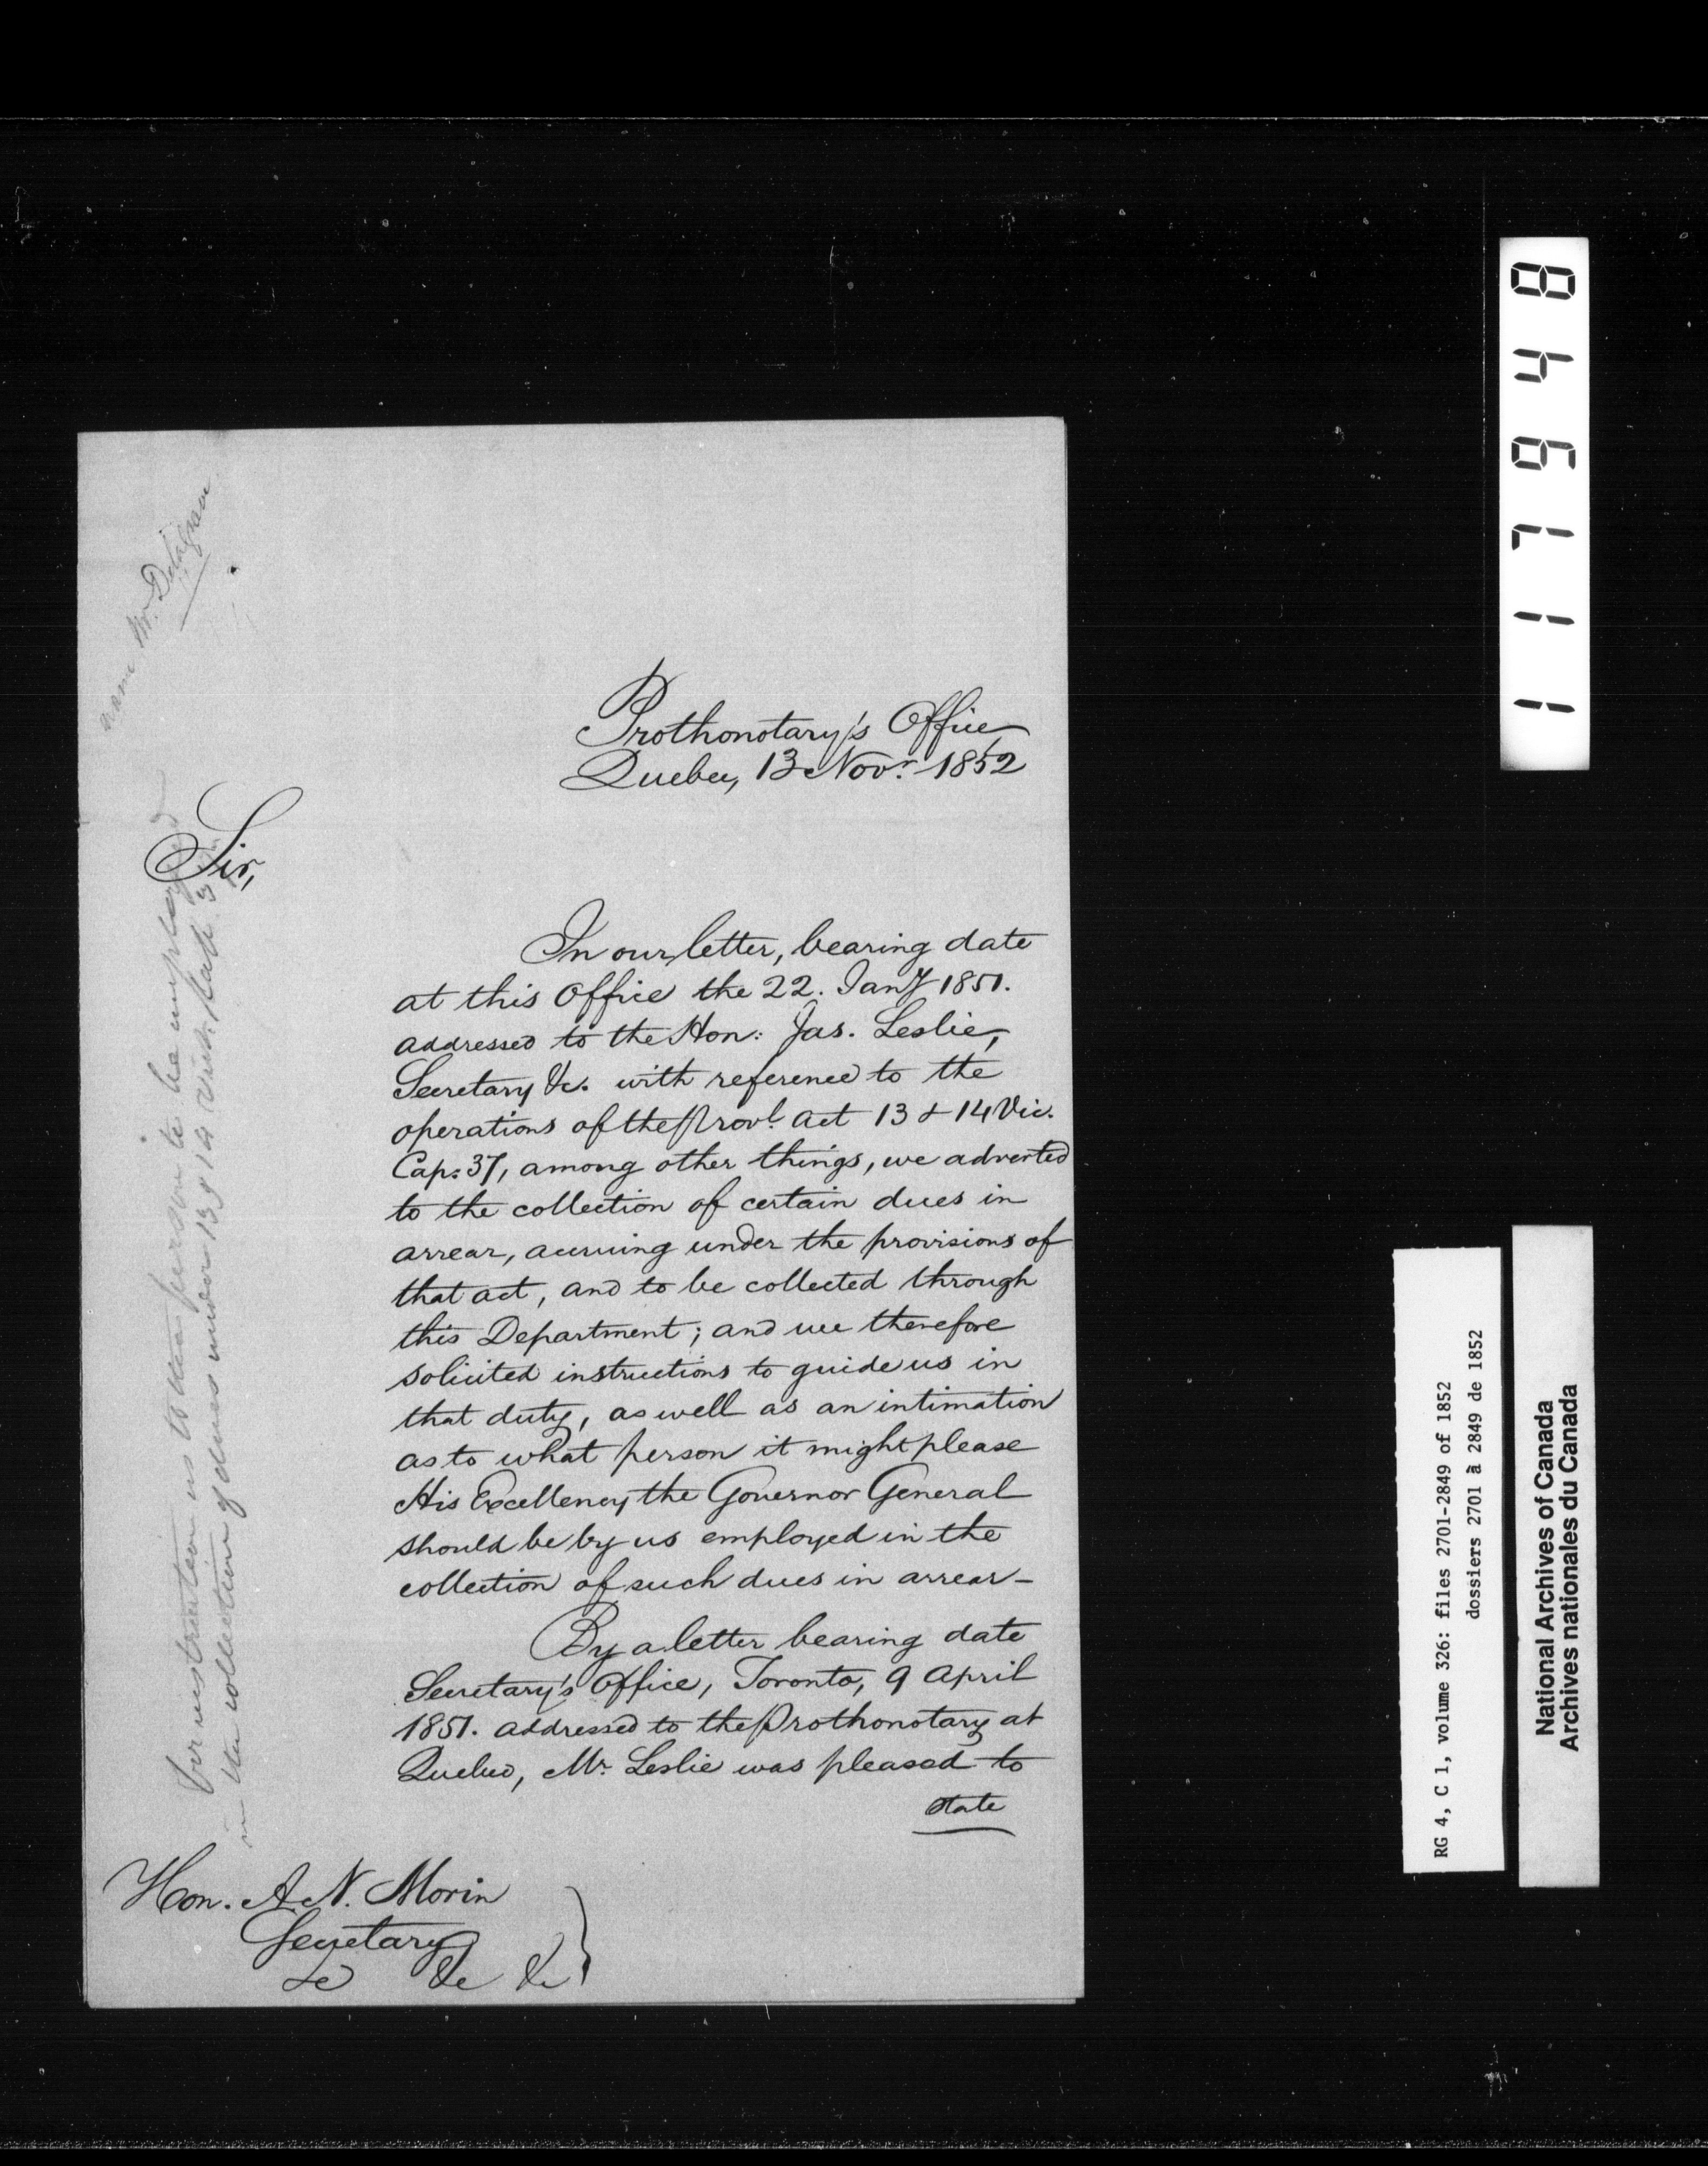 Prothonotary's Office
Quebec, 13 Novr. 1852
Sir,
In our letter, bearing date
at this Office the 22. Jany 1851.
addressed to the Hon: Jas. Leslie,
Secretary &c. with reference to the
operations of the Provl. Act 13 & 14 Vic.
Cap: 37, among other things, we adverted
to the collection of certain dues in
arrear, accruing under the provisions of
that act, and to be collected through
this Department; and we therefore
solicited instructions to guide us in
that duty, as well as an intimation
as to what person it might please
His Excellency the Governor General
should be by us employed in the
collection of such dues in arrear—
By a letter bearing date
Secretary's Office, Toronto, 9 April
1851. addressed to the Prothonotary at
Quebec, Mr. Leslie was pleased to
state
Hon. A. N. Morin
Secretary
&c &c &c
For instruction as to the person to be employed
in the collection of dues under 13 & 14 Vict.
name Mr.
117948
RG 4, C 1, volume 326: files 2701-2849 of 1852
dossiers 2701 à 2849 de 1852
National Archives of Canada
Archives nationales du Canada